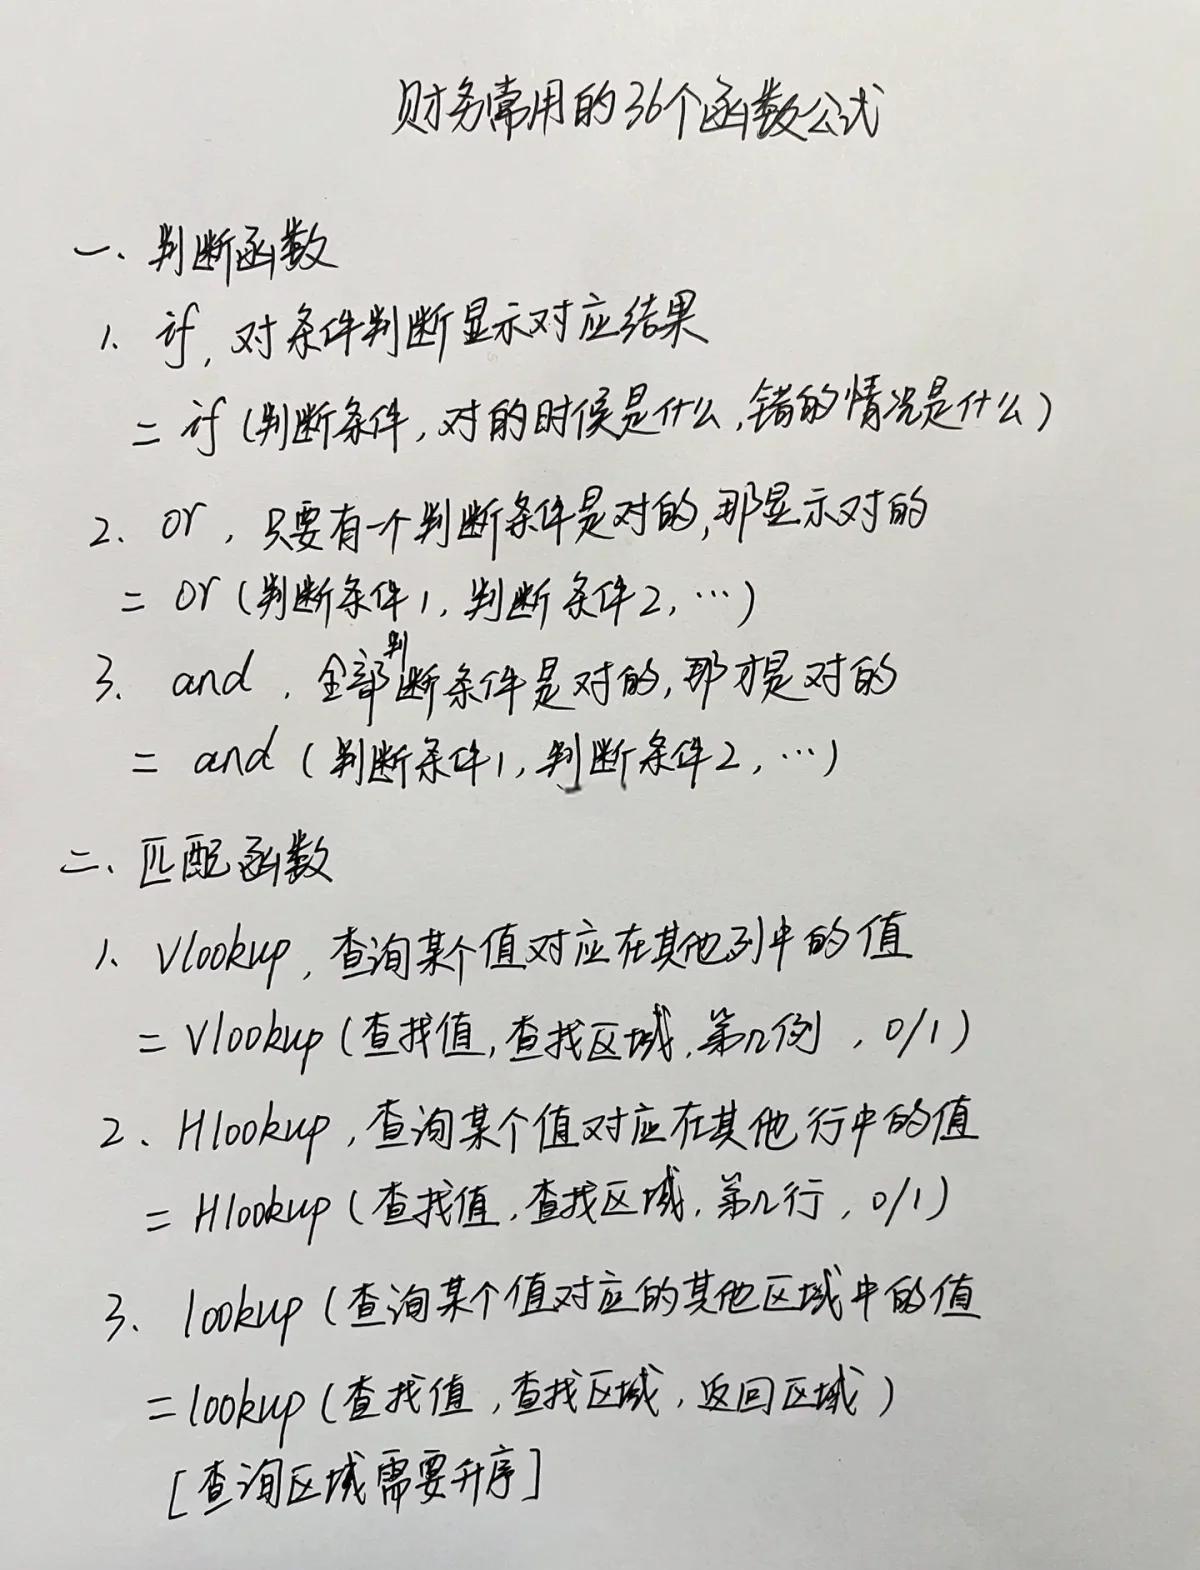 财务常用的36个函数公式
一、判断函数
1、if,对条件判断显示对应结果
=if(判断条件,对的时候是什么,错的情况是什么)
2、or,只要有一个判断条件是对的,那显示对的
=or(判断条件1,判断条件2,…)
3、and,全部判断条件是对的,那才是对的
=and(判断条件1,判断条件2,…)
二、匹配函数
1、Vlookup,查询某个值对应在其他列中的值
=Vlookup(查找值,查找区域,第几例,0/1)
2、Hlookup,查询某个值对应在其他行中的值
=Hlookup(查找值,查找区域,第几行,0/1)
3、lookup(查询某个值对应的其他区域中的值
=lookup(查找值,查找区域,返回区域)
[查询区域需要升序]